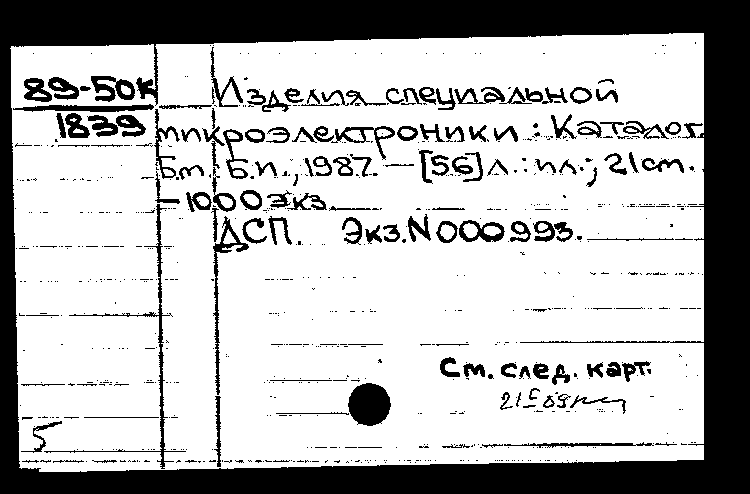 89-50К Изделия специальной
1839 микроэлектроники : Каталог.
Б.м.: Б.и., 1987. — [56] л. : ил.; 21 см.
— 1000 экз.
ДСП. Экз. N 000993.
См. след. карт.
5